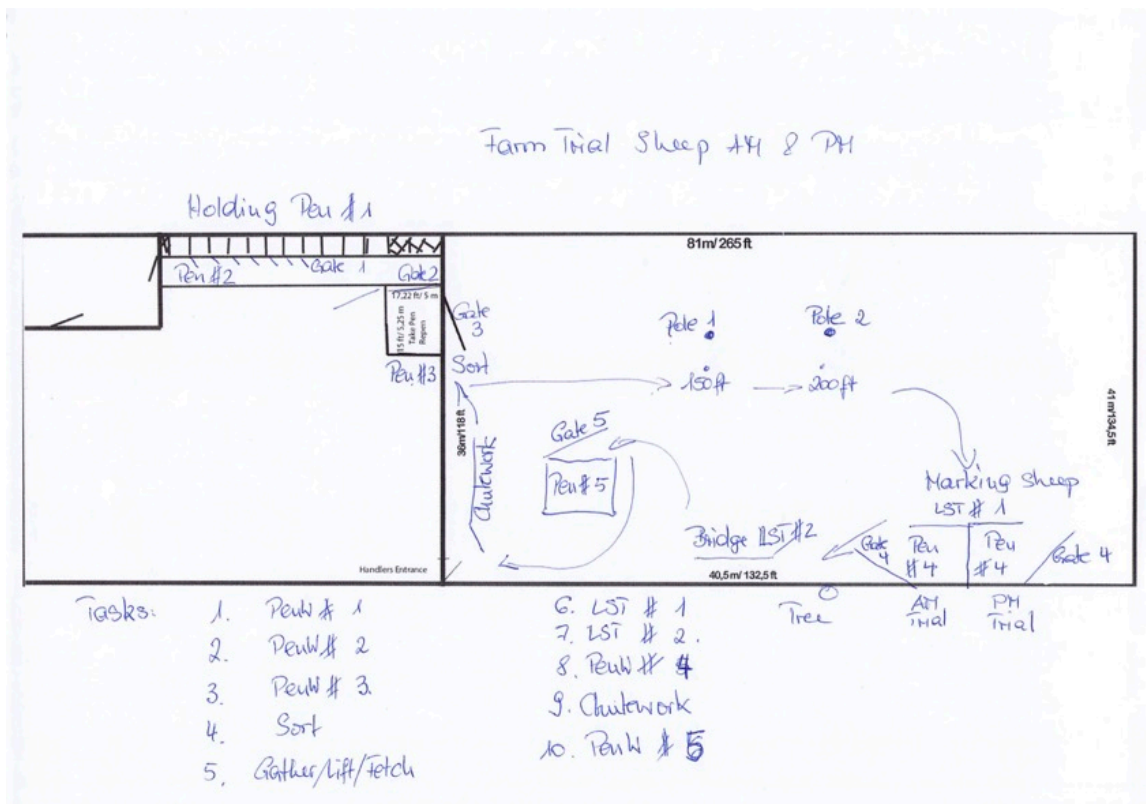 Farm Trial Sheep AM & PM
Holding Pen #1
81m/ 265 ft
Pen #2
Gate 1
Gate2
17,22 ft/ 5 m
15 ft/ 5,25 m
Take Pen
Repen
Gate
3
Pole 1
Pole 2
Sort
Pen #3
150ft
200ft
41 m/134,5ft
36m/118 ft
Chutework
Gate 5
Pen # 5
Marking Sheep
LST # 1
Bridge LST #2
Gate
4
Pen
#4
Pen
#4
Gate 4
Handlers Entrance
40,5m/ 132,5 ft
Tree
AM
Trial
PM
Trial
Tasks:
1. PenW # 1
2. PenW # 2
3. PenW # 3.
4. Sort
5. Gather/Lift/Fetch
6. LST # 1
7. LST # 2.
8. PenW # 4
9. Chutework
10. PenW # 5